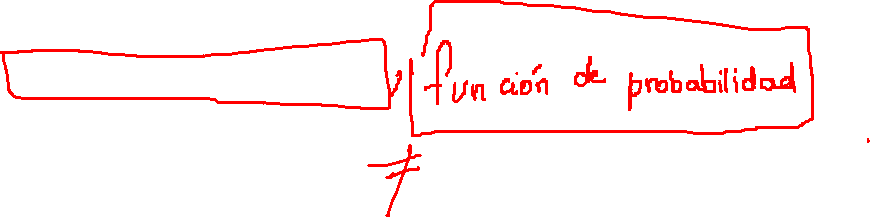 función de probabilidad
≠